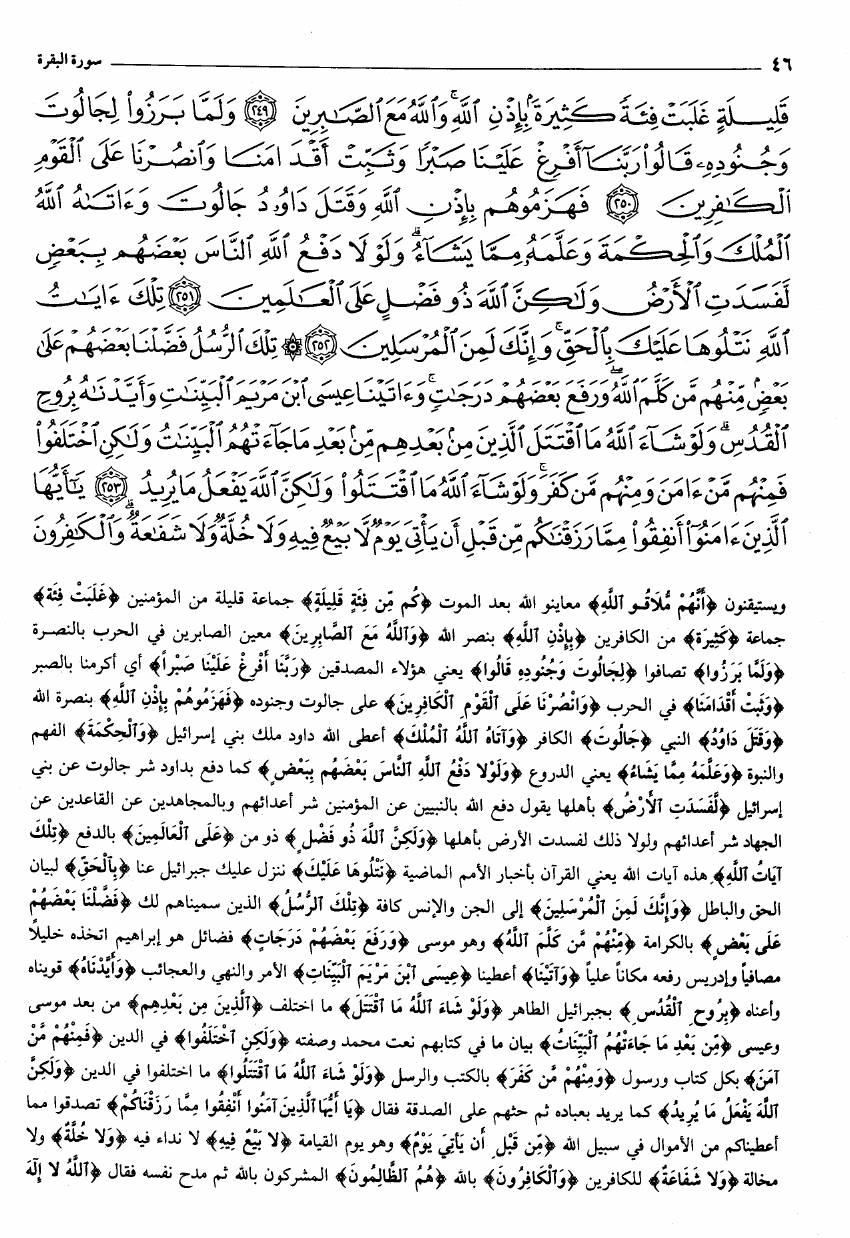 ٤٦ سورة البقرة
قَلِيلَةٍ غَلَبَتْ فِئَةً كَثِيرَةً بِإِذْنِ ٱللَّهِ ۗ وَٱللَّهُ مَعَ ٱلصَّـٰبِرِينَ ٢٤٩ وَلَمَّا بَرَزُوا۟ لِجَالُوتَ
وَجُنُودِهِۦ قَالُوا۟ رَبَّنَآ أَفْرِغْ عَلَيْنَا صَبْرًا وَثَبِّتْ أَقْدَامَنَا وَٱنصُرْنَا عَلَى ٱلْقَوْمِ
ٱلْكَـٰفِرِينَ ٢٥٠ فَهَزَمُوهُم بِإِذْنِ ٱللَّهِ وَقَتَلَ دَاوُۥدُ جَالُوتَ وَءَاتَىٰهُ ٱللَّهُ
ٱلْمُلْكَ وَٱلْحِكْمَةَ وَعَلَّمَهُۥ مِمَّا يَشَآءُ ۗ وَلَوْلَا دَفْعُ ٱللَّهِ ٱلنَّاسَ بَعْضَهُم بِبَعْضٍ
لَّفَسَدَتِ ٱلْأَرْضُ وَلَـٰكِنَّ ٱللَّهَ ذُو فَضْلٍ عَلَى ٱلْعَـٰلَمِينَ ٢٥١ تِلْكَ ءَايَـٰتُ
ٱللَّهِ نَتْلُوهَا عَلَيْكَ بِٱلْحَقِّ ۚ وَإِنَّكَ لَمِنَ ٱلْمُرْسَلِينَ ٢٥٢ ۞ تِلْكَ ٱلرُّسُلُ فَضَّلْنَا بَعْضَهُمْ عَلَىٰ
بَعْضٍ ۘ مِّنْهُم مَّن كَلَّمَ ٱللَّهُ ۖ وَرَفَعَ بَعْضَهُمْ دَرَجَـٰتٍ ۚ وَءَاتَيْنَا عِيسَى ٱبْنَ مَرْيَمَ ٱلْبَيِّنَـٰتِ وَأَيَّدْنَـٰهُ بِرُوحِ
ٱلْقُدُسِ ۗ وَلَوْ شَآءَ ٱللَّهُ مَا ٱقْتَتَلَ ٱلَّذِينَ مِنۢ بَعْدِهِم مِّنۢ بَعْدِ مَا جَآءَتْهُمُ ٱلْبَيِّنَـٰتُ وَلَـٰكِنِ ٱخْتَلَفُوا۟
فَمِنْهُم مَّنْ ءَامَنَ وَمِنْهُم مَّن كَفَرَ ۚ وَلَوْ شَآءَ ٱللَّهُ مَا ٱقْتَتَلُوا۟ وَلَـٰكِنَّ ٱللَّهَ يَفْعَلُ مَا يُرِيدُ ٢٥٣ يَـٰٓأَيُّهَا
ٱلَّذِينَ ءَامَنُوٓا۟ أَنفِقُوا۟ مِمَّا رَزَقْنَـٰكُم مِّن قَبْلِ أَن يَأْتِىَ يَوْمٌ لَّا بَيْعٌ فِيهِ وَلَا خُلَّةٌ وَلَا شَفَـٰعَةٌ ۗ وَٱلْكَـٰفِرُونَ
ويستيقنون ﴿أَنَّهُمْ مُّلَاقُو ٱللَّهِ﴾ معاينو الله بعد الموت ﴿كَم مِّن فِئَةٍ قَلِيلَةٍ﴾ جماعة قليلة من المؤمنين ﴿غَلَبَتْ فِئَةً﴾
جماعة ﴿كَثِيرَةً﴾ من الكافرين ﴿بِإِذْنِ ٱللَّهِ﴾ بنصر الله ﴿وَٱللَّهُ مَعَ ٱلصَّابِرِينَ﴾ معين الصابرين في الحرب بالنصرة
﴿وَلَمَّا بَرَزُوا﴾ تصافوا ﴿لِجَالُوتَ وَجُنُودِهِ قَالُوا﴾ يعني هؤلاء المصدقين ﴿رَبَّنَا أَفْرِغْ عَلَيْنَا صَبْراً﴾ أي أكرمنا بالصبر
﴿وَثَبِّتْ أَقْدَامَنَا﴾ في الحرب ﴿وَانْصُرْنَا عَلَى ٱلْقَوْمِ ٱلْكَافِرِينَ﴾ على جالوت وجنوده ﴿فَهَزَمُوهُمْ بِإِذْنِ ٱللَّهِ﴾ بنصرة الله
﴿وَقَتَلَ دَاوُدُ﴾ النبي ﴿جَالُوتَ﴾ الكافر ﴿وَآتَاهُ ٱللَّهُ ٱلْمُلْكَ﴾ أعطى الله داود ملك بني إسرائيل ﴿وَٱلْحِكْمَةَ﴾ الفهم
والنبوة ﴿وَعَلَّمَهُ مِمَّا يَشَاءُ﴾ يعني الدروع ﴿وَلَوْلَا دَفْعُ ٱللَّهِ ٱلنَّاسَ بَعْضَهُم بِبَعْضٍ﴾ كما دفع بداود شر جالوت عن بني
إسرائيل ﴿لَّفَسَدَتِ ٱلْأَرْضُ﴾ بأهلها يقول دفع الله بالنبيين عن المؤمنين شر أعدائهم وبالمجاهدين عن القاعدين عن
الجهاد شر أعدائهم ولولا ذلك لفسدت الأرض بأهلها ﴿وَلَكِنَّ ٱللَّهَ ذُو فَضْلٍ﴾ ذو من ﴿عَلَى ٱلْعَالَمِينَ﴾ بالدفع ﴿تِلْكَ
آيَاتُ ٱللَّهِ﴾ هذه آيات الله يعني القرآن بأخبار الأمم الماضية ﴿نَتْلُوهَا عَلَيْكَ﴾ ننزل عليك جبرائيل عنا ﴿بِٱلْحَقِّ﴾ لبيان
الحق والباطل ﴿وَإِنَّكَ لَمِنَ ٱلْمُرْسَلِينَ﴾ إلى الجن والإنس كافة ﴿تِلْكَ ٱلرُّسُلُ﴾ الذين سميناهم لك ﴿فَضَّلْنَا بَعْضَهُمْ
عَلَى بَعْضٍ﴾ بالكرامة ﴿مِنْهُمْ مَّن كَلَّمَ ٱللَّهُ﴾ وهو موسى ﴿وَرَفَعَ بَعْضَهُمْ دَرَجَاتٍ﴾ فضائل هو إبراهيم اتخذه خليلاً
مصافياً وإدريس رفعه مكاناً علياً ﴿وَآتَيْنَا﴾ أعطينا ﴿عِيسَى ٱبْنَ مَرْيَمَ ٱلْبَيِّنَاتِ﴾ الأمر والنهي والعجائب ﴿وَأَيَّدْنَاهُ﴾ قويناه
وأعناه ﴿بِرُوحِ ٱلْقُدُسِ﴾ بجبرائيل الطاهر ﴿وَلَوْ شَاءَ ٱللَّهُ مَا ٱقْتَتَلَ﴾ ما اختلف ﴿ٱلَّذِينَ مِن بَعْدِهِم﴾ من بعد موسى
وعيسى ﴿مِّن بَعْدِ مَا جَاءَتْهُمُ ٱلْبَيِّنَاتُ﴾ بيان ما في كتابهم نعت محمد وصفته ﴿وَلَكِنِ ٱخْتَلَفُوا﴾ في الدين ﴿فَمِنْهُمْ مَّنْ
آمَنَ﴾ بكل كتاب ورسول ﴿وَمِنْهُمْ مَّن كَفَرَ﴾ بالكتب والرسل ﴿وَلَوْ شَاءَ ٱللَّهُ مَا ٱقْتَتَلُوا﴾ ما اختلفوا في الدين ﴿وَلَكِنَّ
ٱللَّهَ يَفْعَلُ مَا يُرِيدُ﴾ كما يريد بعباده ثم حثهم على الصدقة فقال ﴿يَا أَيُّهَا ٱلَّذِينَ آمَنُوا أَنْفِقُوا مِمَّا رَزَقْنَاكُمْ﴾ تصدقوا مما
أعطيناكم من الأموال في سبيل الله ﴿مِّن قَبْلِ أَن يَأْتِيَ يَوْمٌ﴾ وهو يوم القيامة ﴿لَا بَيْعٌ فِيهِ﴾ لا نداء فيه ﴿وَلَا خُلَّةٌ﴾ ولا
مخالة ﴿وَلَا شَفَاعَةٌ﴾ للكافرين ﴿وَٱلْكَافِرُونَ﴾ بالله ﴿هُمُ ٱلظَّالِمُونَ﴾ المشركون بالله ثم مدح نفسه فقال ﴿ٱللَّهُ لَا إِلَهَ